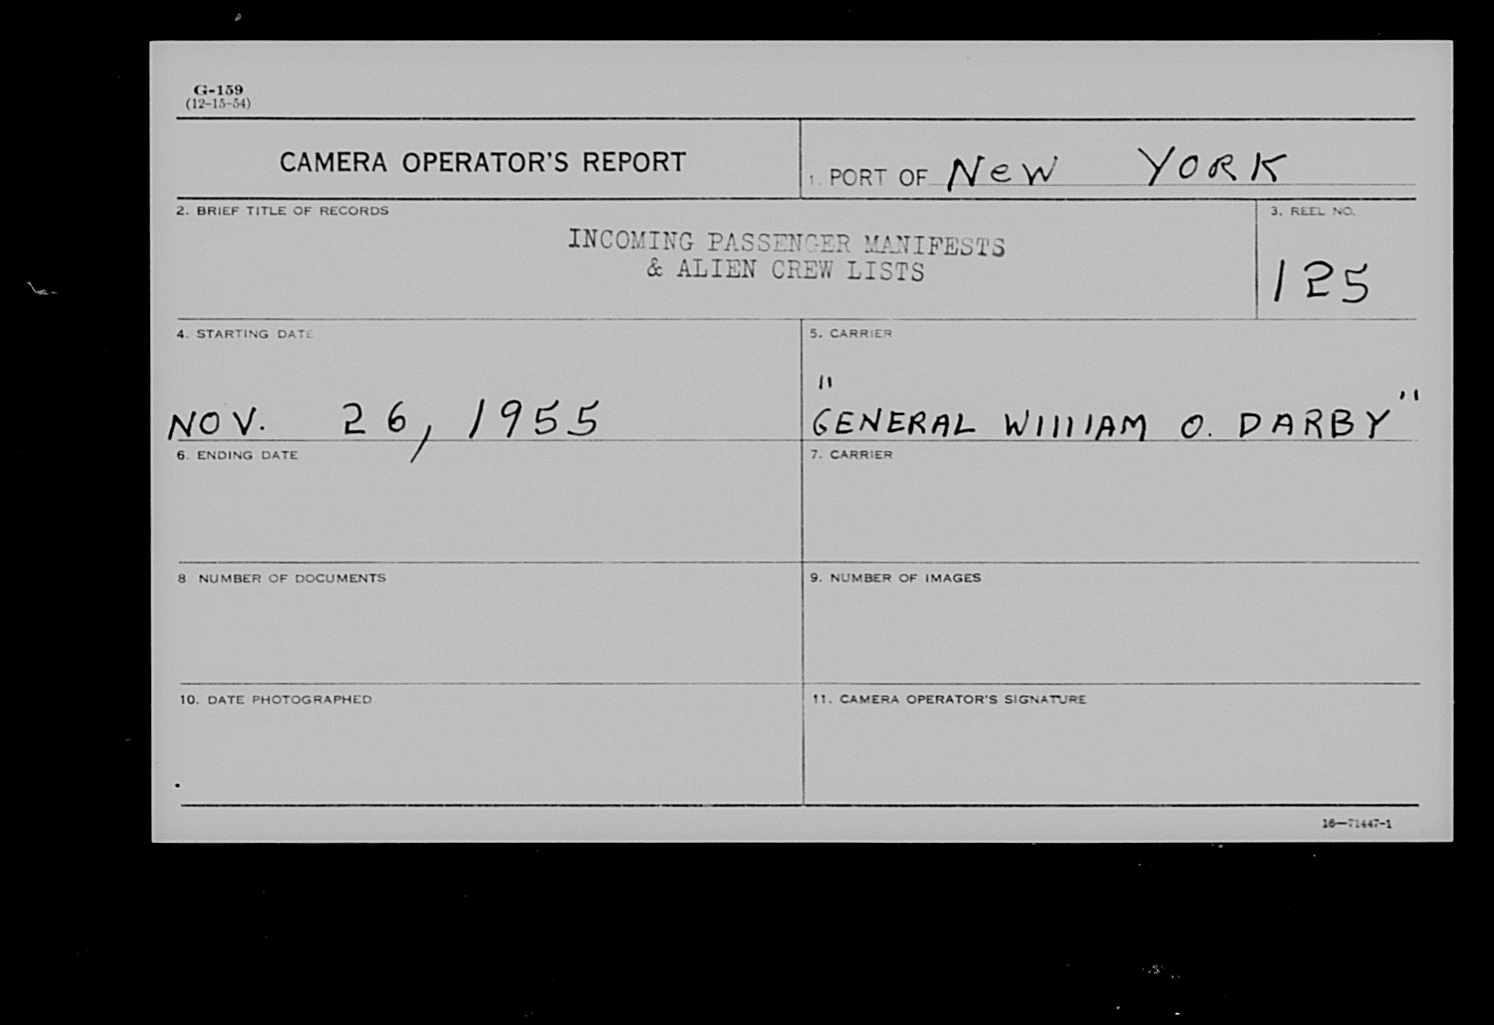 G-159
(12-15-54)
CAMERA OPERATOR'S REPORT
1. PORT OF NeW YORK
2. BRIEF TITLE OF RECORDS
INCOMING PASSENGER MANIFESTS
& ALIEN CREW LISTS
3. REEL NO.
125
4. STARTING DATE
NOV. 26, 1955
5. CARRIER
"
GENERAL WIllIAM O. DARBY"
6. ENDING DATE
7. CARRIER
8 NUMBER OF DOCUMENTS
9. NUMBER OF IMAGES
10. DATE PHOTOGRAPHED
11. CAMERA OPERATOR'S SIGNATURE
16—71447-1